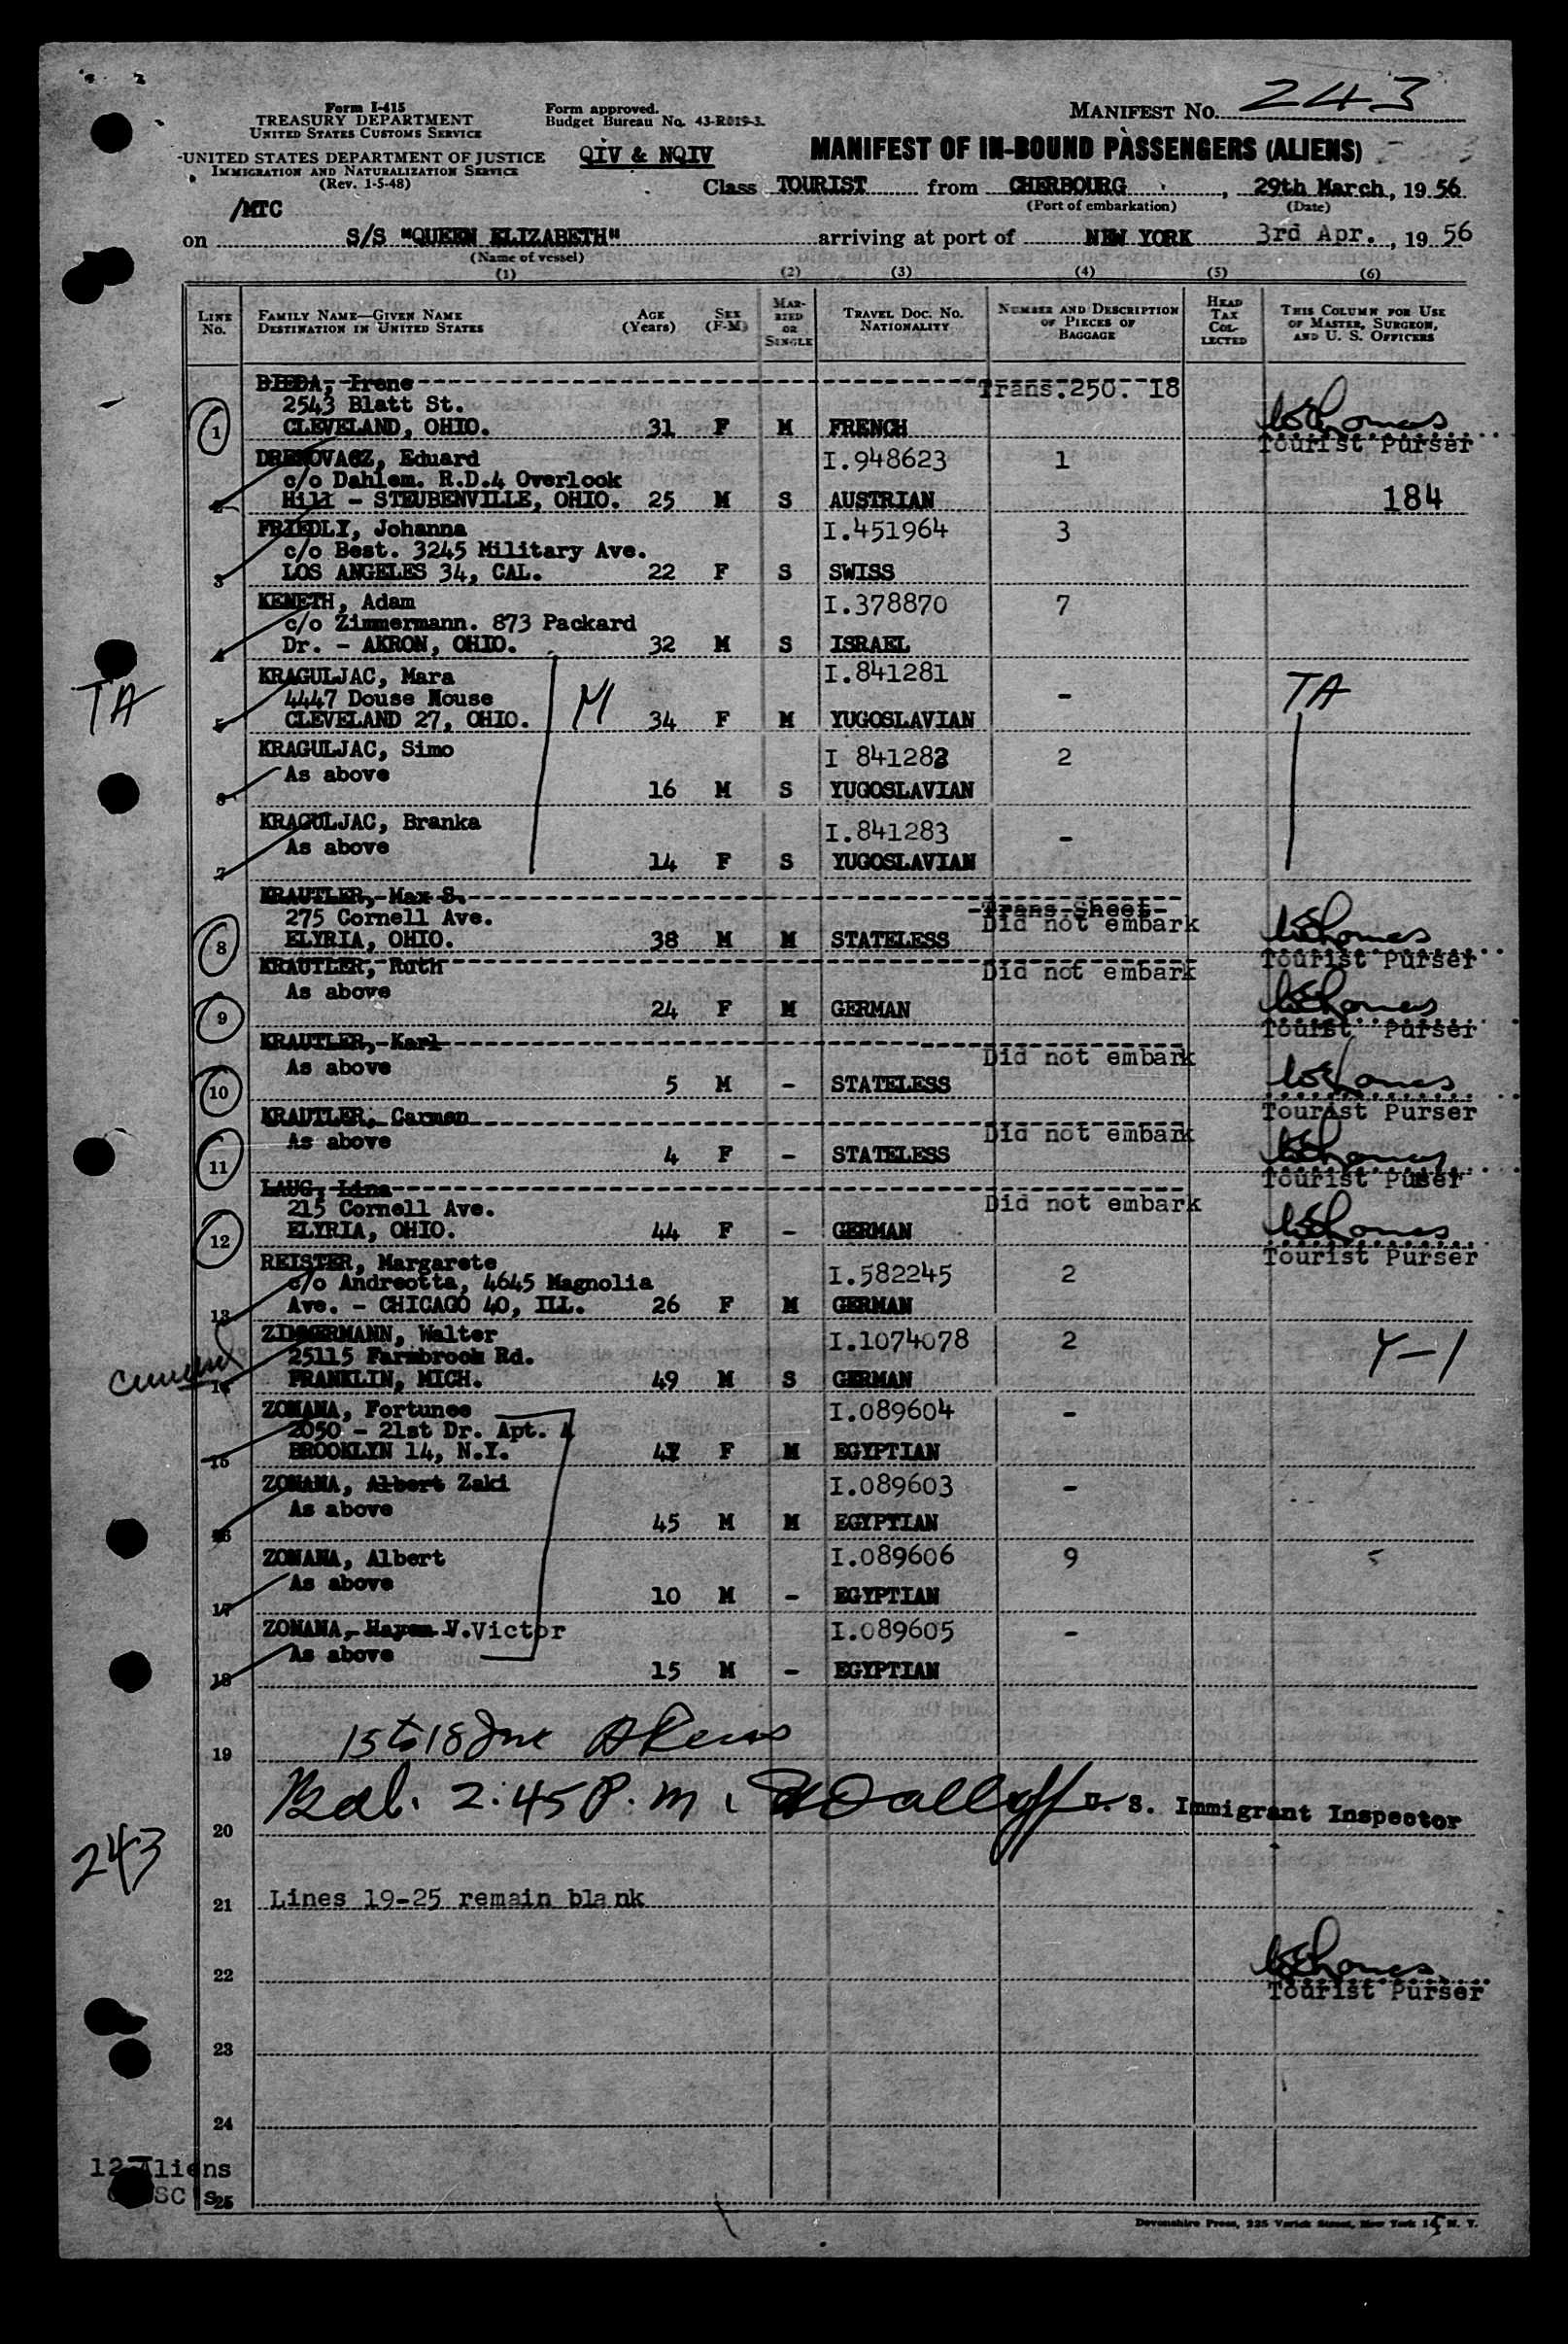 MANIFEST NO. 243
Form I-415
TREASURY DEPARTMENT
UNITED STATES CUSTOMS SERVICE
Form approved.
Budget Bureau No. 43-R019-3.
UNITED STATES DEPARTMENT OF JUSTICE
IMMIGRATION AND NATURALIZATION SERVICE
(Rev. 1-5-48)
QIV & NQIV
MANIFEST OF IN-BOUND PASSENGERS (ALIENS)
Class TOURIST from CHERBOURG, 29th March, 19 56
(Port of embarkation) (Date)
/MTC
on S/S "QUEEN ELIZABETH" arriving at port of NEW YORK 3rd Apr., 19 56
(Name of vessel)
(1) (2) (3) (4) (5) (6)
LINE No.
FAMILY NAME—GIVEN NAME
DESTINATION IN UNITED STATES
AGE (Years)
SEX (F-M)
MARRIED OR SINGLE
TRAVEL DOC. NO.
NATIONALITY
NUMBER AND DESCRIPTION OF PIECES OF BAGGAGE
HEAD TAX COLLECTED
THIS COLUMN FOR USE OF MASTER, SURGEON, AND U. S. OFFICERS
BIEDA, Irene Trans.250. I8
2543 Blatt St.
1 CLEVELAND, OHIO. 31 F M FRENCH
Tourist Purser
DRENOVACZ, Eduard I.948623 1
c/o Dahlem. R.D.4 Overlook
2 Hill - STEUBENVILLE, OHIO. 25 M S AUSTRIAN 184
FRIEDLI, Johanna I.451964 3
c/o Best. 3245 Military Ave.
3 LOS ANGELES 34, CAL. 22 F S SWISS
KENETH, Adam I.378870 7
c/o Zimmermann. 873 Packard
4 Dr. - AKRON, OHIO. 32 M S ISRAEL
KRAGULJAC, Mara I.841281 -
4447 Douse Nouse
TA M TA
5 CLEVELAND 27, OHIO. 34 F M YUGOSLAVIAN
KRAGULJAC, Simo I 841282 2
As above
6 16 M S YUGOSLAVIAN
KRAGULJAC, Branka I.841283 -
As above
7 14 F S YUGOSLAVIAN
KRAUTLER, Max S. Trans Sheet
275 Cornell Ave. Did not embark
8 ELYRIA, OHIO. 38 M M STATELESS
Tourist Purser
KRAUTLER, Ruth Did not embark
As above
9 24 F M GERMAN
Tourist Purser
KRAUTLER, Karl Did not embark
As above
10 5 M - STATELESS
Tourist Purser
KRAUTLER, Carmen Did not embark
As above
11 4 F - STATELESS
Tourist Purser
LAUG, Lina Did not embark
215 Cornell Ave.
12 ELYRIA, OHIO. 44 F - GERMAN
Tourist Purser
REISTER, Margarete I.582245 2
c/o Andreotta, 4645 Magnolia
13 Ave. - CHICAGO 40, ILL. 26 F M GERMAN
ZIMMERMANN, Walter I.1074078 2 Y-1
25115 Farmbrook Rd.
14 FRANKLIN, MICH. 49 M S GERMAN
ZOMANA, Fortunee I.089604 -
2050 - 21st Dr. Apt. A
15 BROOKLYN 14, N.Y. F M EGYPTIAN
ZOMANA, Albert Zaki I.089603 -
As above
16 45 M M EGYPTIAN
ZOMANA, Albert I.089606 9
As above
17 10 M - EGYPTIAN
ZOMANA, V.Victor I.089605 -
As above
18 15 M - EGYPTIAN
15 to 18 Inc
19
Bal. 2:45 P.m. U. S. Immigrant Inspector
20
243
21 Lines 19-25 remain blank
22
Tourist Purser
23
24
12 Aliens
25
Devonshire Press, 225 Varick Street, New York 14, N. Y.